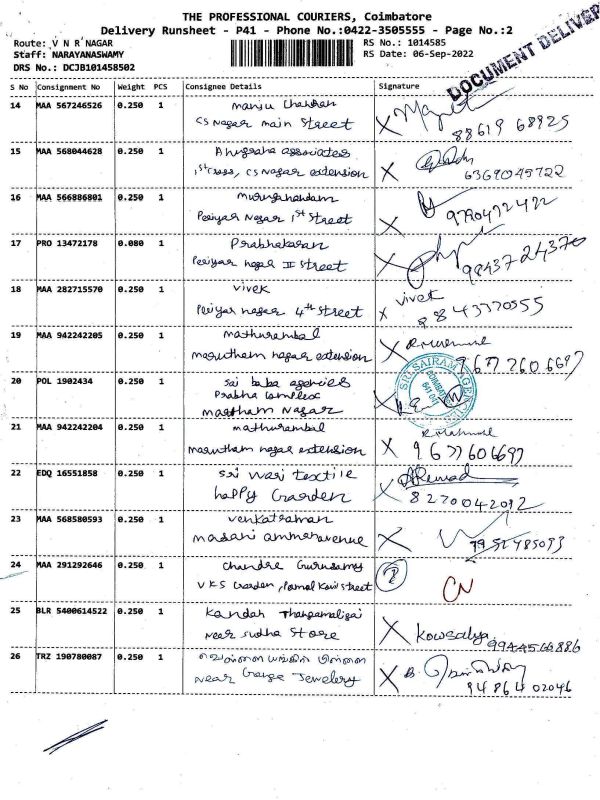 THE PROFESSIONAL COURIERS, Coimbatore
Delivery Runsheet - P41 - Phone No.:0422-3505555 - Page No.:2
Route: V N R NAGAR
RS No.: 1014585
Staff: NARAYANASWAMY
RS Date: 06-Sep-2022
DRS No.: DCJB101458502
DOCUMENT DELIVER
S No Consignment No Weight PCS Consignee Details Signature
14 MAA 567246526 0.250 1 manju
CS Nagar main Street 88619 68925
15 MAA 568044628 0.250 1 Anugraha associates
1st cross, CS Nagar extension 6369045722
16 MAA 566886801 0.250 1 murunanandam
Periyar Nagar 1st Street 9790472422
17 PRO 13472178 0.080 1 Prabhakaran
Periyar nagar II Street 9843724370
18 MAA 282715570 0.250 1 vivek vivek
Periyar nagar 4th street 9843370555
19 MAA 942242205 0.250 1 mathurambal
marutham nagar extension 9677606697
20 POL 1902434 0.250 1 sai baba agencies
Prabha Complex
maratham Nagar
SRI SAIRAM AGENCIES
21 MAA 942242204 0.250 1 mathurambal
marutham nagar extension 9677606697
22 EDQ 16551858 0.250 1 Sri Vari textile
happy Garden 8270042092
23 MAA 568580593 0.250 1 venkatraman
masani amman avenue 7951485093
24 MAA 291292646 0.250 1 Chandra Gurusamy
VKS Garden, street CN
25 BLR 5400614522 0.250 1 Kandan Thangamaligai
near sudha store Kowsalya 9944564886
26 TRZ 190780087 0.250 1
near Jewelery 9486402046